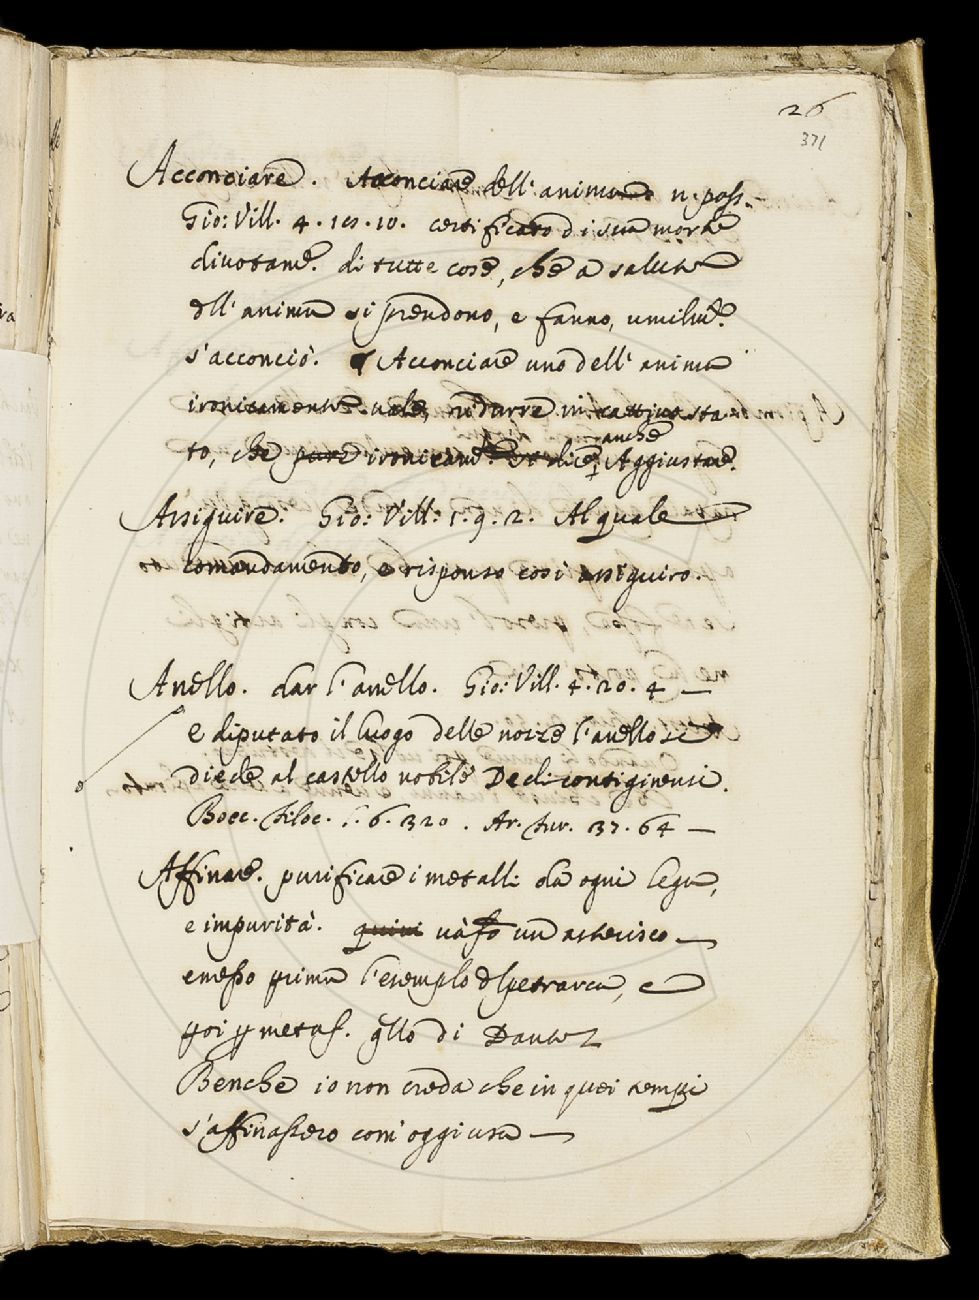 26
371
Acconciare. Acconciare dell'anima n. pass.
Gio: Vill. 4. 10. certificato di sua morte
divotame. di tutte cose, che a salute
dll'anima si prendono, e fanno, umilmte.
s'acconciò. Acconciare uno dell'anima
ironicamente vale, ridurre in cattivo sta=
to, che pure ironicame. si dice anche Aggiustare.
Asseguire. Gio: Vill: 1. 9. 2. Al quale
comandamento, e risponso così asseguiro.
Anello. dar l'anello. Gio: Vill. 4. 20. 4 —
e diputato il luogo delle nozze l'anello si
diede al castello nobile
Bocc. filoc. l. 6. 320. Ar. fur. 37. 64 —
Affinare. purificare i metalli da ogni lega,
e impurità. quivi và fto un asterisco —
e messo prima l'esemplo dl petrarca, e
poi p metaf. qllo di Dante
Benche io non creda che in quei tempi
s'affinassero com'oggi usa —